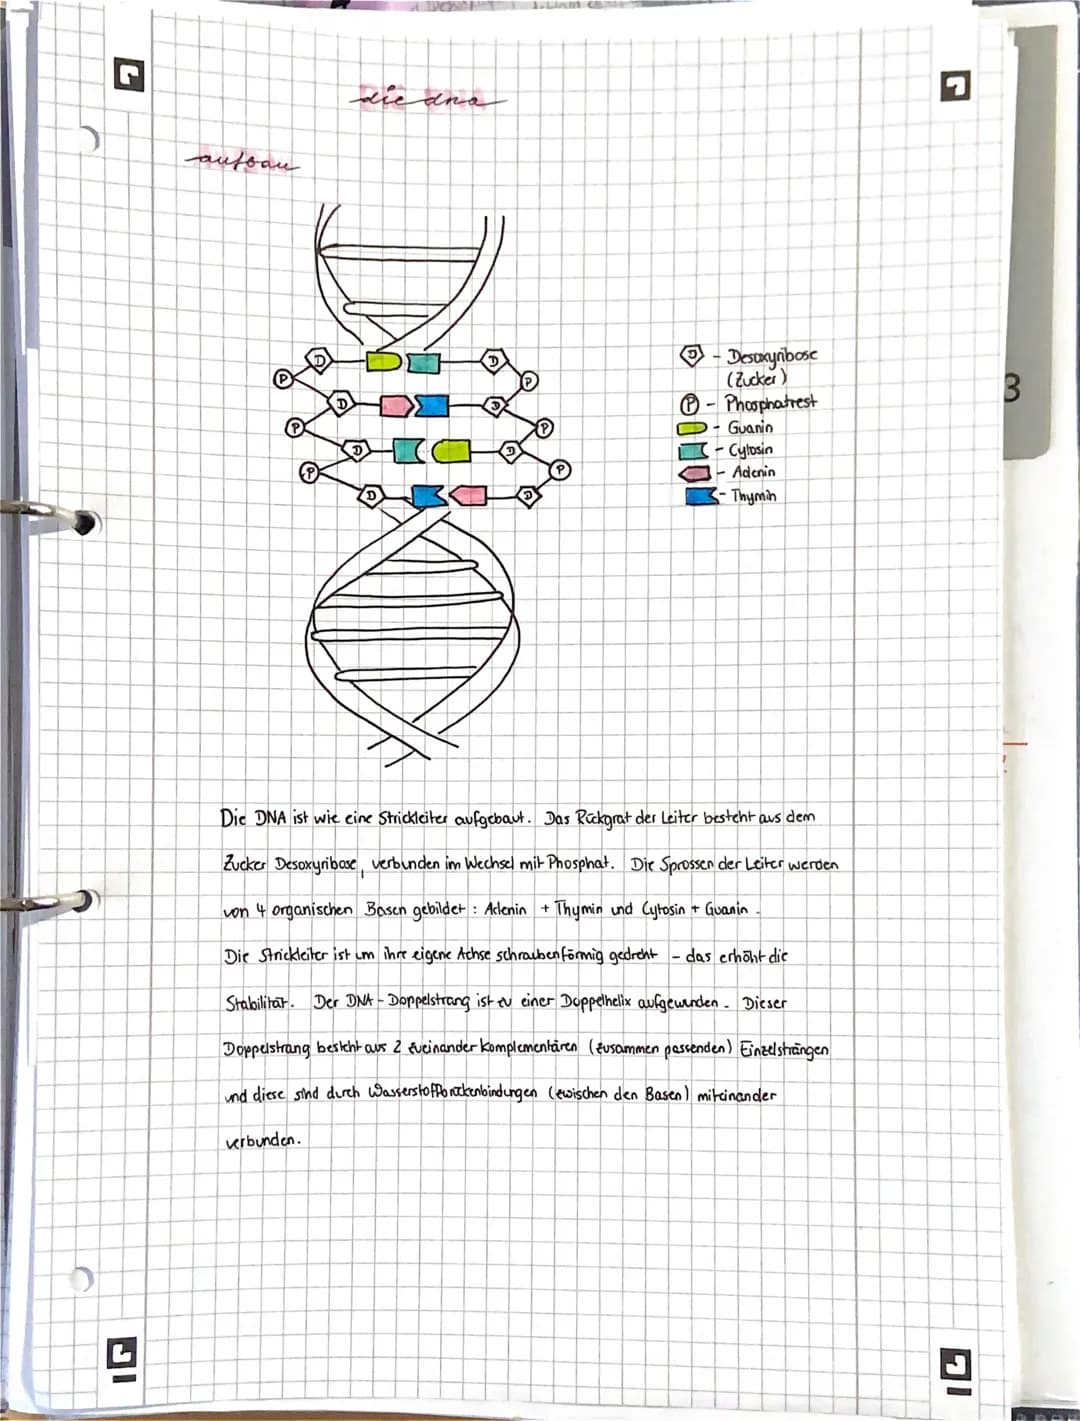 die dna
aufbau
D
D
P
P
D
D
P
P
D
D
P
P
D
D
D - Desoxyribose
(Zucker)
P - Phosphatrest
- Guanin
- Cytosin
- Adenin
- Thymin
3
Die DNA ist wie eine Strickleiter aufgebaut. Das Rückgrat der Leiter besteht aus dem
Zucker Desoxyribose, verbunden im Wechsel mit Phosphat. Die Sprossen der Leiter werden
von 4 organischen Basen gebildet : Adenin + Thymin und Cytosin + Guanin.
Die Strickleiter ist um ihre eigene Achse schraubenförmig gedreht - das erhöht die
Stabilität. Der DNA - Doppelstrang ist zu einer Doppelhelix aufgewunden. Dieser
Doppelstrang besteht aus 2 zueinander komplementären (zusammen passenden) Einzelsträngen
und diese sind durch Wasserstoffbrückenbindungen (zwischen den Basen) miteinander
verbunden.